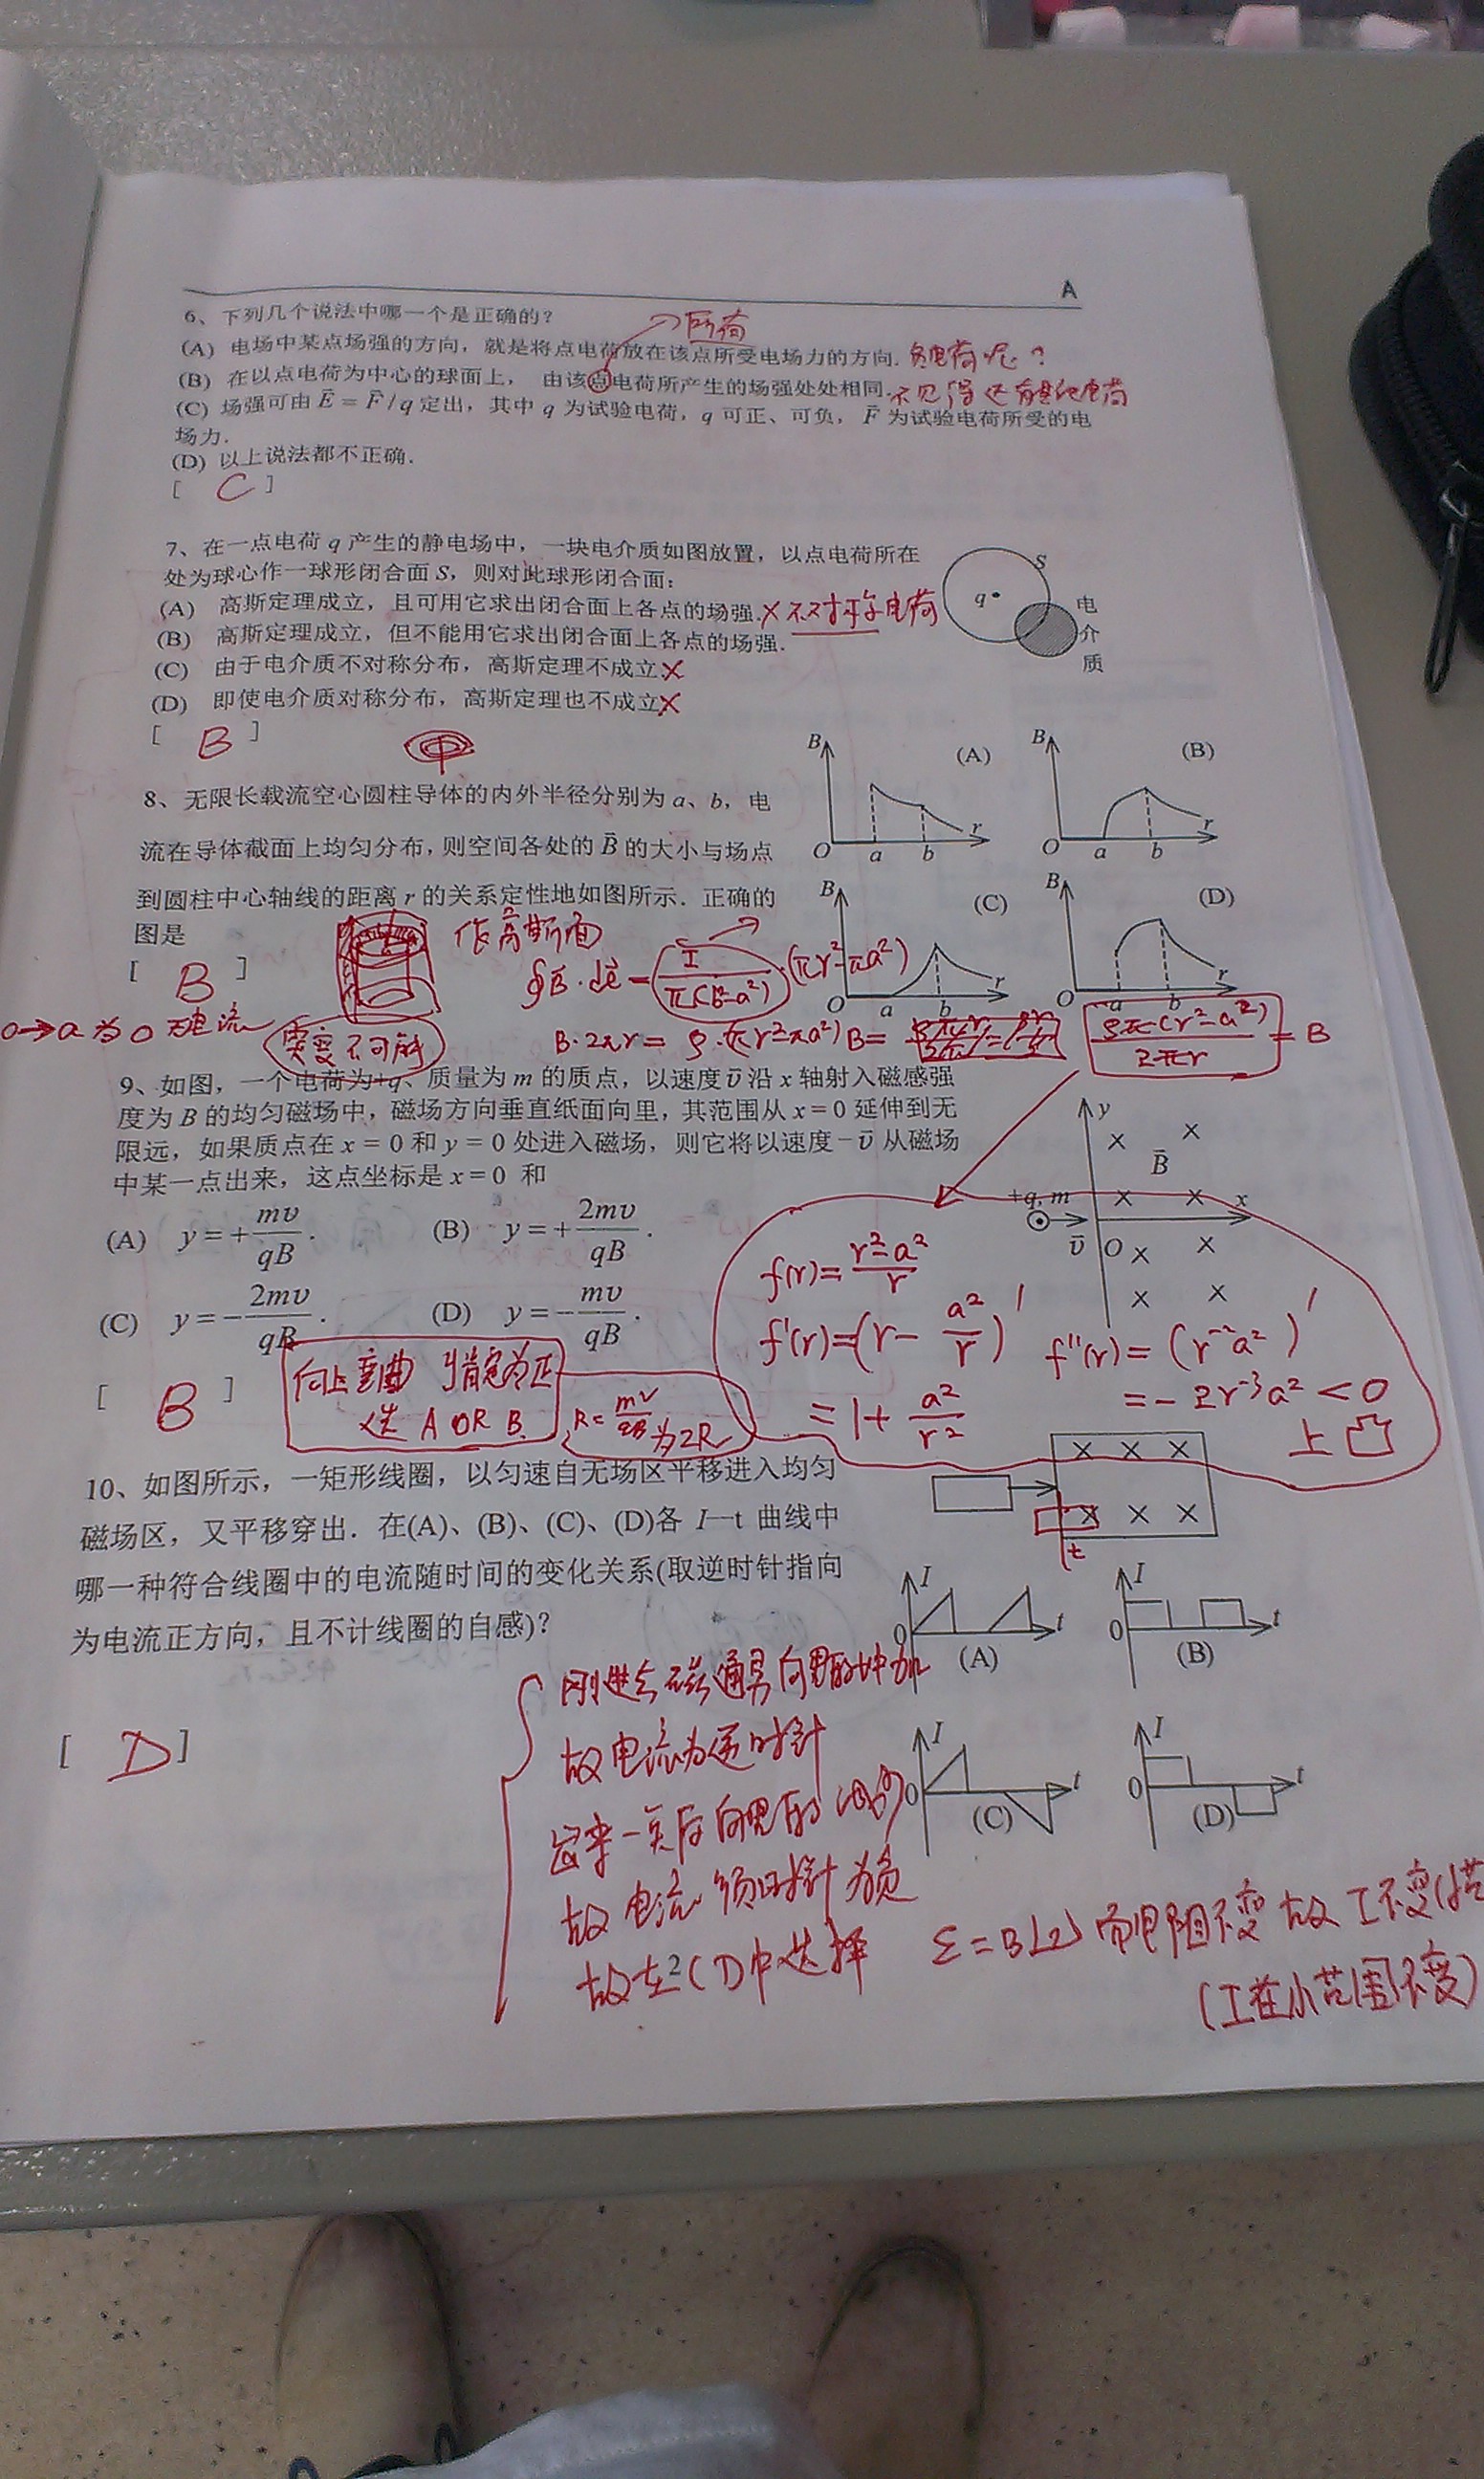 A
6、下列几个说法中哪一个是正确的?
(A) 电场中某点场强的方向，就是将点电荷放在该点所受电场力的方向. 负电荷呢?
(B) 在以点电荷为中心的球面上， 由该点电荷所产生的场强处处相同.
(C) 场强可由 E⃗ = F⃗ / q 定出，其中 q 为试验电荷，q 可正、可负，F⃗ 为试验电荷所受的电
场力.
(D) 以上说法都不正确.
[ C ]
7、在一点电荷 q 产生的静电场中，一块电介质如图放置，以点电荷所在
处为球心作一球形闭合面 S，则对此球形闭合面：
(A) 高斯定理成立，且可用它求出闭合面上各点的场强. ×
(B) 高斯定理成立，但不能用它求出闭合面上各点的场强.
(C) 由于电介质不对称分布，高斯定理不成立. ×
(D) 即使电介质对称分布，高斯定理也不成立. ×
[ B ]
S
q
电
介
质
8、无限长载流空心圆柱导体的内外半径分别为 a、b，电
流在导体截面上均匀分布，则空间各处的 B⃗ 的大小与场点
到圆柱中心轴线的距离 r 的关系定性地如图所示．正确的
图是
[ B ]
B (A) O a b r
B (B) O a b r
B (C) O a b r
B (D) O a b r
作高斯面
∮B⃗·dl⃗ = I/π(b²-a²) · (πr²-πa²)
0→a 为 0 无电流
突变不可能
B·2πr = ρ·(πr²-πa²) B=
ρπ(r²-a²)/2πr = B
9、如图，一个电荷为+q、质量为 m 的质点，以速度 v⃗ 沿 x 轴射入磁感强
度为 B 的均匀磁场中，磁场方向垂直纸面向里，其范围从 x = 0 延伸到无
限远，如果质点在 x = 0 和 y = 0 处进入磁场，则它将以速度 −v⃗ 从磁场
中某一点出来，这点坐标是 x = 0 和
(A) y = + mv/qB . (B) y = + 2mv/qB .
(C) y = − 2mv/qB . (D) y = − mv/qB .
[ B ]
y
B⃗
+q, m
x
v⃗
O
向上弯曲 y肯定为正
选 A OR B
R = mv/qB 为2R
f(r) = r²-a²/r
f'(r) = (r - a²/r)'
= 1 + a²/r²
f''(r) = (r⁻²a²)'
= -2r⁻³a² < 0
上凸
10、如图所示，一矩形线圈，以匀速自无场区平移进入均匀
磁场区，又平移穿出．在(A)、(B)、(C)、(D)各 I—t 曲线中
哪一种符合线圈中的电流随时间的变化关系(取逆时针指向
为电流正方向，且不计线圈的自感)?
[ D ]
t
I 0 t (A)
I 0 t (B)
I 0 t (C)
I 0 t (D)
刚进去磁通量向里的增加
故电流为逆时针
出来一类后向里的减少
故电流顺时针为负
故在 (D)中选择
而电阻不变 故 I不变
(I在小范围不变)
2